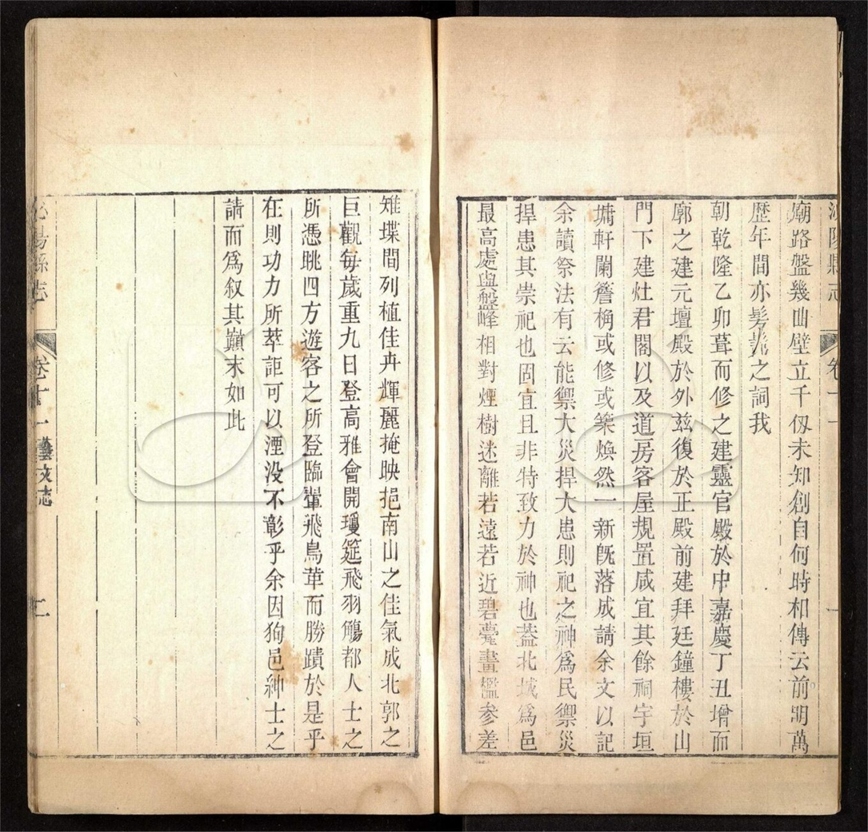 泌陽縣志
卷十一
一
廟路盤幾曲壁立千仭未知創自何時相傳云前明萬
歷年間亦髣髴之詞我
朝乾隆乙卯葺而修之建靈官殿於中嘉慶丁丑增而
廓之建元壇殿於外兹復於正殿前建拜廷鐘樓於山
門下建灶君閣以及道房客屋規置咸宜其餘祠宇垣
墉軒闌簷桷或修或築煥然一新旣落成請余文以記
余讀祭法有云能禦大災捍大患則祀之神爲民禦災
捍患其崇祀也固宜且非特致力於神也葢北城爲邑
最高處與盤峰相對煙樹迷離若遠若近碧甍畫檻參差
雉堞間列植佳卉輝麗掩映挹南山之佳氣成北郭之
巨觀每歲重九日登高雅會開瓊筵飛羽觴都人士之
所憑眺四方遊客之所登臨翬飛鳥革而勝蹟於是乎
在則功力所萃詎可以湮没不彰乎余因狥邑紳士之
請而爲叙其巔末如此
泌陽縣志
卷十一藝文志
二